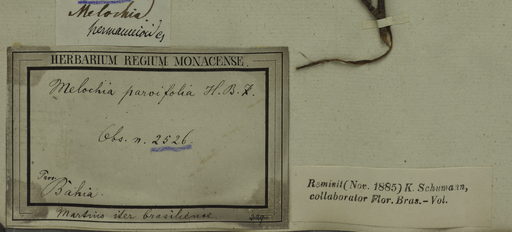 Melochia
hermannioides
HERBARIUM REGIUM MONACENSE.
Melochia parvifolia H. B. K.
Obs. n. 2526
Prov.
Bahia.
Martius iter brasiliense.
Remisit (Nov. 1885) K. Schumann,
collaborator Flor. Bras.- Vol.